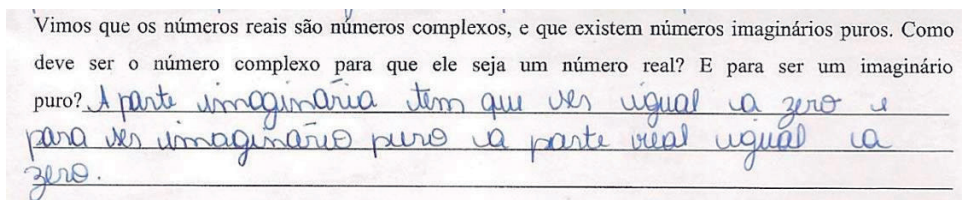 Vimos que os números reais são números complexos, e que existem números imaginários puros. Como
deve ser o número complexo para que ele seja um número real? E para ser um imaginário
puro? A parte imaginária tem que ser igual a zero e
para ser imaginário puro a parte real igual a
zero.